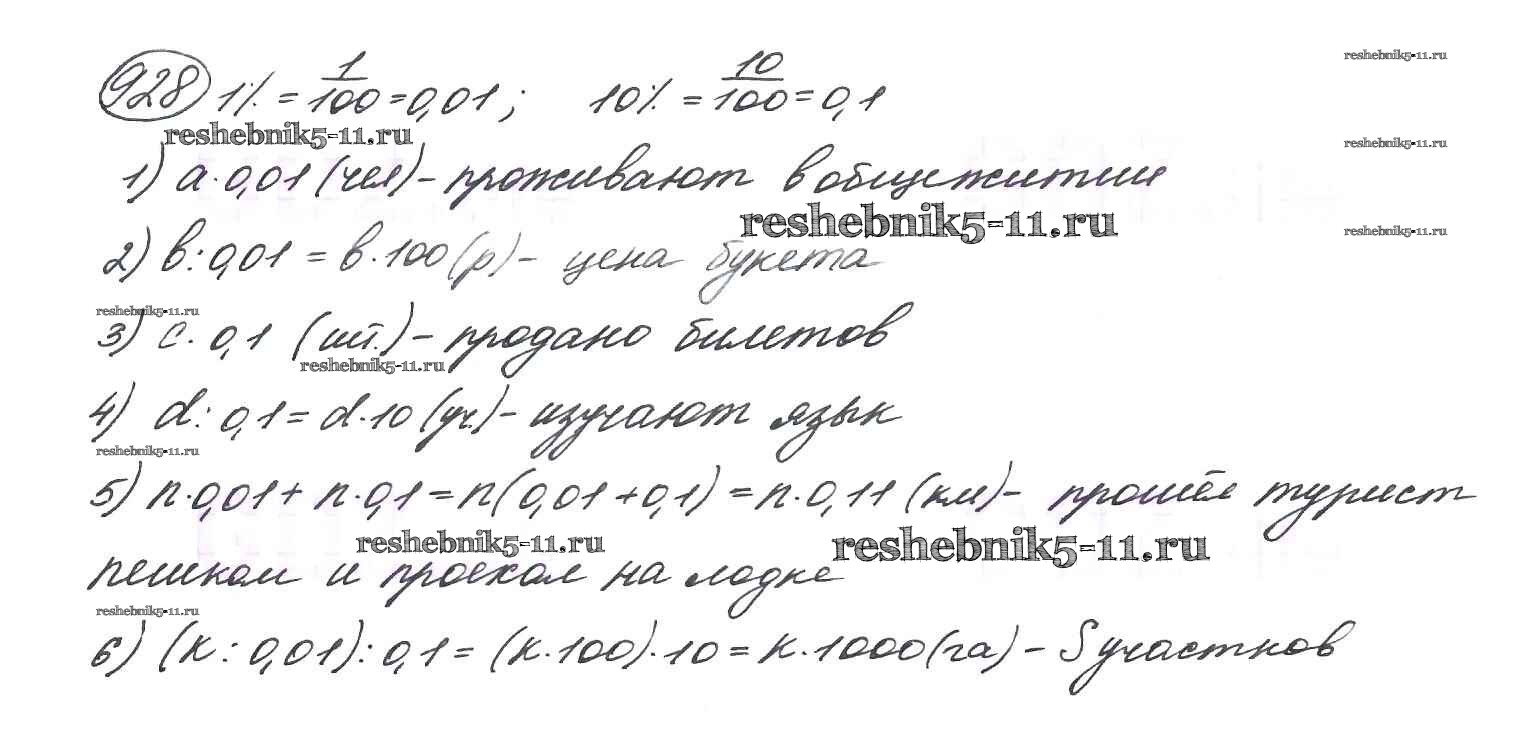 928 1% = 1/100 = 0,01; 10% = 10/100 = 0,1
reshebnik5-11.ru
reshebnik5-11.ru
reshebnik5-11.ru
1) a·0,01 (чел) - проживают в общежитии
reshebnik5-11.ru
reshebnik5-11.ru
2) b:0,01 = b·100 (р) - цена букета
reshebnik5-11.ru
3) c·0,1 (шт.) - продано билетов
reshebnik5-11.ru
4) d:0,1 = d·10 (уч.) - изучают язык
reshebnik5-11.ru
5) n·0,01 + n·0,1 = n(0,01+0,1) = n·0,11 (км) - прошёл турист
reshebnik5-11.ru
reshebnik5-11.ru
пешком и проехал на лодке
reshebnik5-11.ru
6) (k:0,01):0,1 = (k·100)·10 = k·1000 (га) - S участков